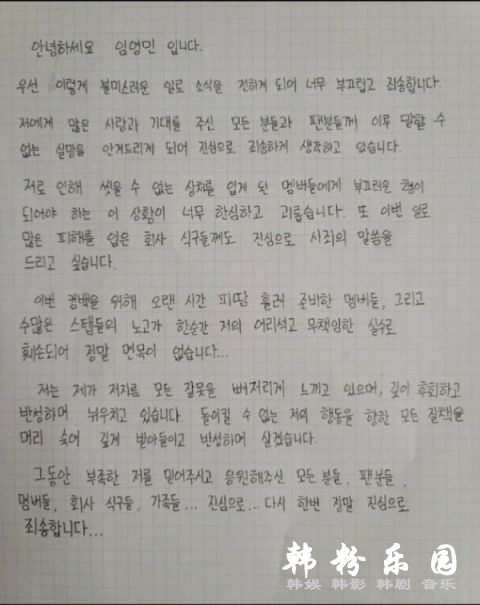 안녕하세요 임영민 입니다.
우선 이렇게 불미스러운 일로 소식을 전하게 되어 너무 부끄럽고 죄송합니다.
저에게 많은 사랑과 기대를 주신 모든 분들과 팬분들께 이루 말할 수
없는 실망을 안겨드리게 되어 진심으로 죄송하게 생각하고 있습니다.
저로 인해 씻을 수 없는 상처를 입게 된 멤버들에게 부끄러운 형이
되어야 하는 이 상황이 너무 한심하고 괴롭습니다. 또 이번 일로
많은 피해를 입은 회사 식구들께도 진심으로 사죄의 말씀을
드리고 싶습니다.
이번 컴백을 위해 오랜 시간 피땀 흘려 준비한 멤버들, 그리고
수많은 스탭들의 노고가 한순간 저의 어리석고 무책임한 실수로
훼손되어 정말 면목이 없습니다...
저는 제가 저지른 모든 잘못을 뼈저리게 느끼고 있으며, 깊이 후회하고
반성하며 뉘우치고 있습니다. 돌이킬 수 없는 저의 행동을 향한 모든 질책을
머리 숙여 깊게 받아들이고 반성하며 살겠습니다.
그동안 부족한 저를 믿어주시고 응원해주신 모든 분들, 팬분들,
멤버들, 회사 식구들, 가족들... 진심으로... 다시 한번 정말 진심으로
죄송합니다...
韩粉乐园
韩娱 韩影 韩剧 音乐